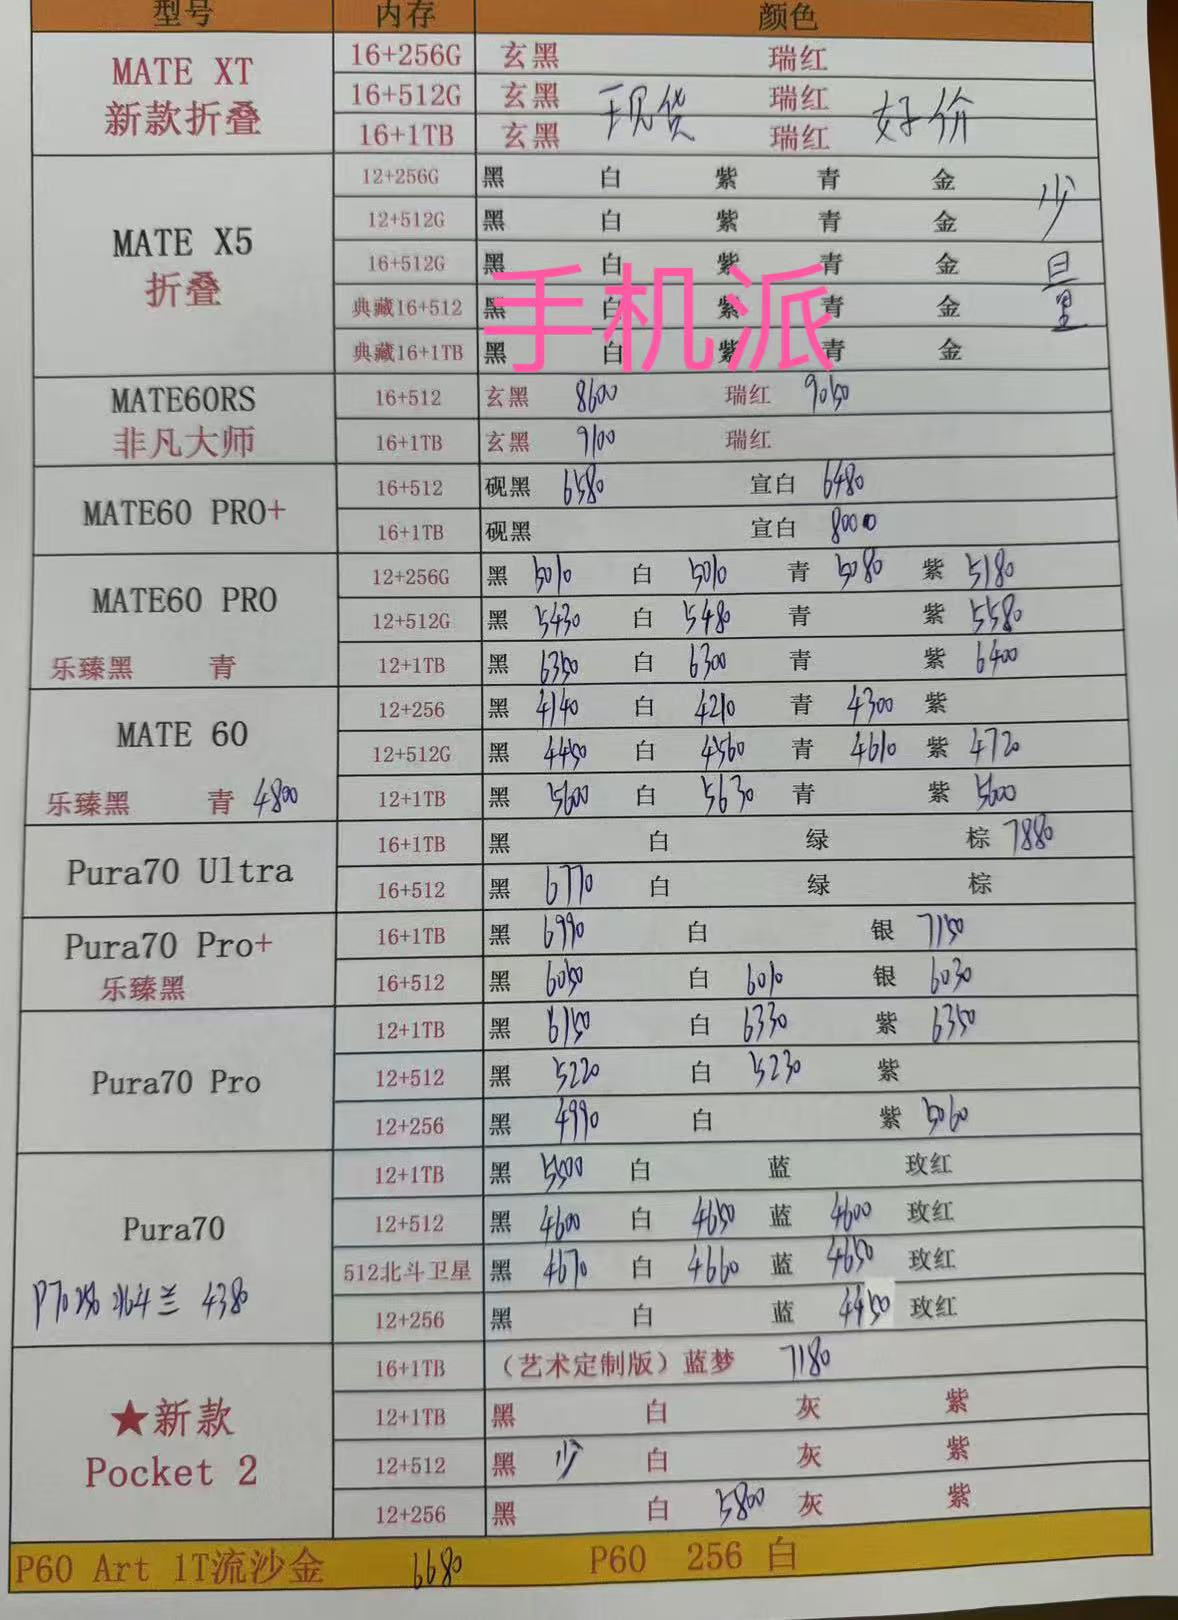 型号 内存 颜色
MATE XT 新款折叠 16+256G 玄黑 瑞红
16+512G 玄黑 现货 瑞红 好价
16+1TB 玄黑 瑞红
MATE X5 折叠 12+256G 黑 白 紫 青 金 少量
12+512G 黑 白 紫 青 金
16+512G 黑 白 紫 青 金
手机派
典藏16+512 黑 白 紫 青 金
典藏16+1TB 黑 白 紫 青 金
MATE60RS 非凡大师 16+512 玄黑 8600 瑞红 9050
16+1TB 玄黑 9100 瑞红
MATE60 PRO+ 16+512 砚黑 6580 宣白 6480
16+1TB 砚黑 宣白 8000
MATE60 PRO 12+256G 黑 5010 白 5010 青 5080 紫 5180
12+512G 黑 5430 白 5480 青 紫 5580
乐臻黑 青 12+1TB 黑 6350 白 6300 青 紫 6400
MATE 60 12+256 黑 4140 白 4210 青 4300 紫
12+512G 黑 4450 白 4560 青 4610 紫 4720
乐臻黑 青 4800 12+1TB 黑 5600 白 5630 青 紫 5600
Pura70 Ultra 16+1TB 黑 白 绿 棕 7880
16+512 黑 6770 白 绿 棕
Pura70 Pro+ 16+1TB 黑 6990 白 银 7150
乐臻黑 16+512 黑 6050 白 6010 银 6030
Pura70 Pro 12+1TB 黑 6150 白 6330 紫 6350
12+512 黑 5220 白 5230 紫
12+256 黑 4990 白 紫 5060
Pura70 12+1TB 黑 5500 白 蓝 玫红
12+512 黑 4600 白 4650 蓝 4600 玫红
P70 256 北斗兰 4380 512北斗卫星 黑 4670 白 4660 蓝 4650 玫红
12+256 黑 白 蓝 4450 玫红
★新款 Pocket 2 16+1TB （艺术定制版）蓝梦 7180
12+1TB 黑 白 灰 紫
12+512 黑 少 白 灰 紫
12+256 黑 白 5800 灰 紫
P60 Art 1T流沙金 6680 P60 256 白